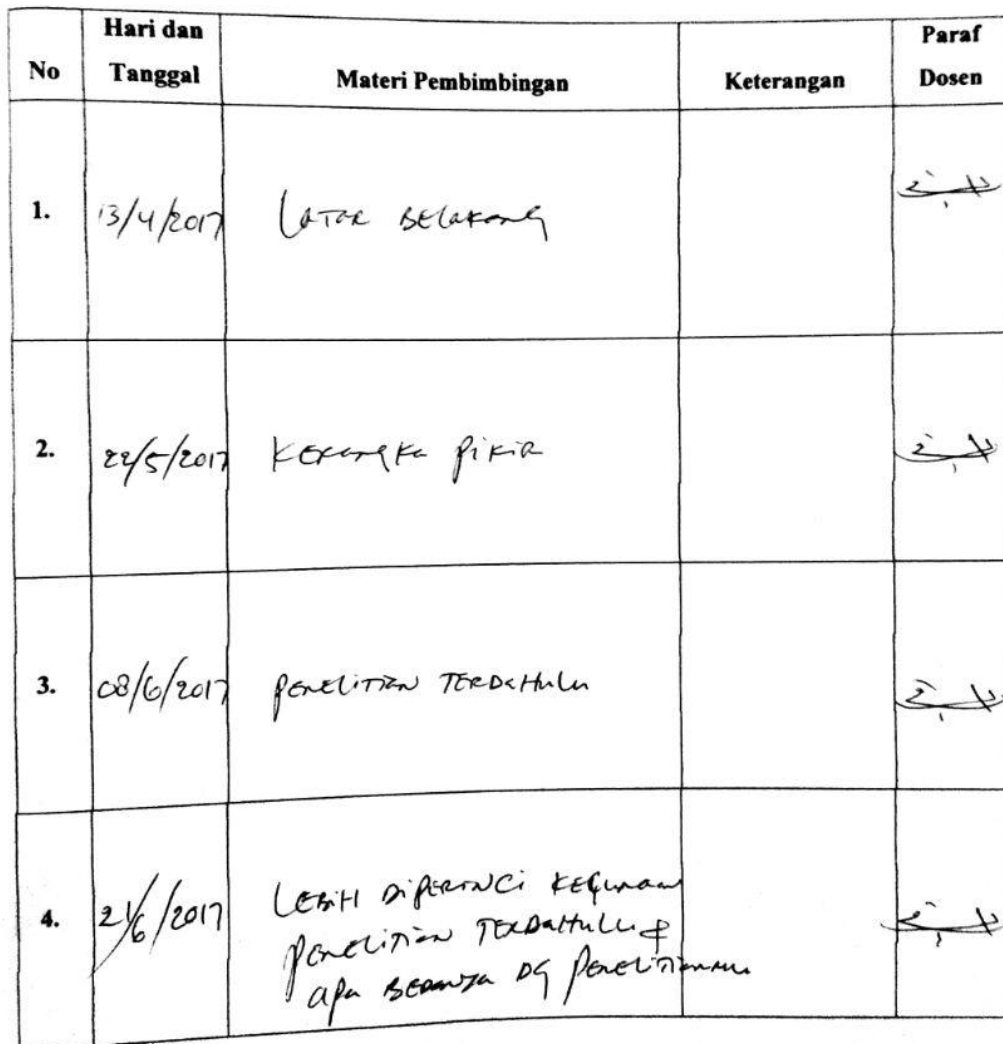 No
Hari dan
Tanggal
Materi Pembimbingan
Keterangan
Paraf
Dosen
1.
13/4/2017
Latar Belakang
2.
22/5/2017
Kerangka Pikir
3.
08/6/2017
Penelitian Terdahulu
4.
21/6/2017
Lebih diperinci kegunaan
penelitian terdahulu &
apa bedanya dg penelitianmu